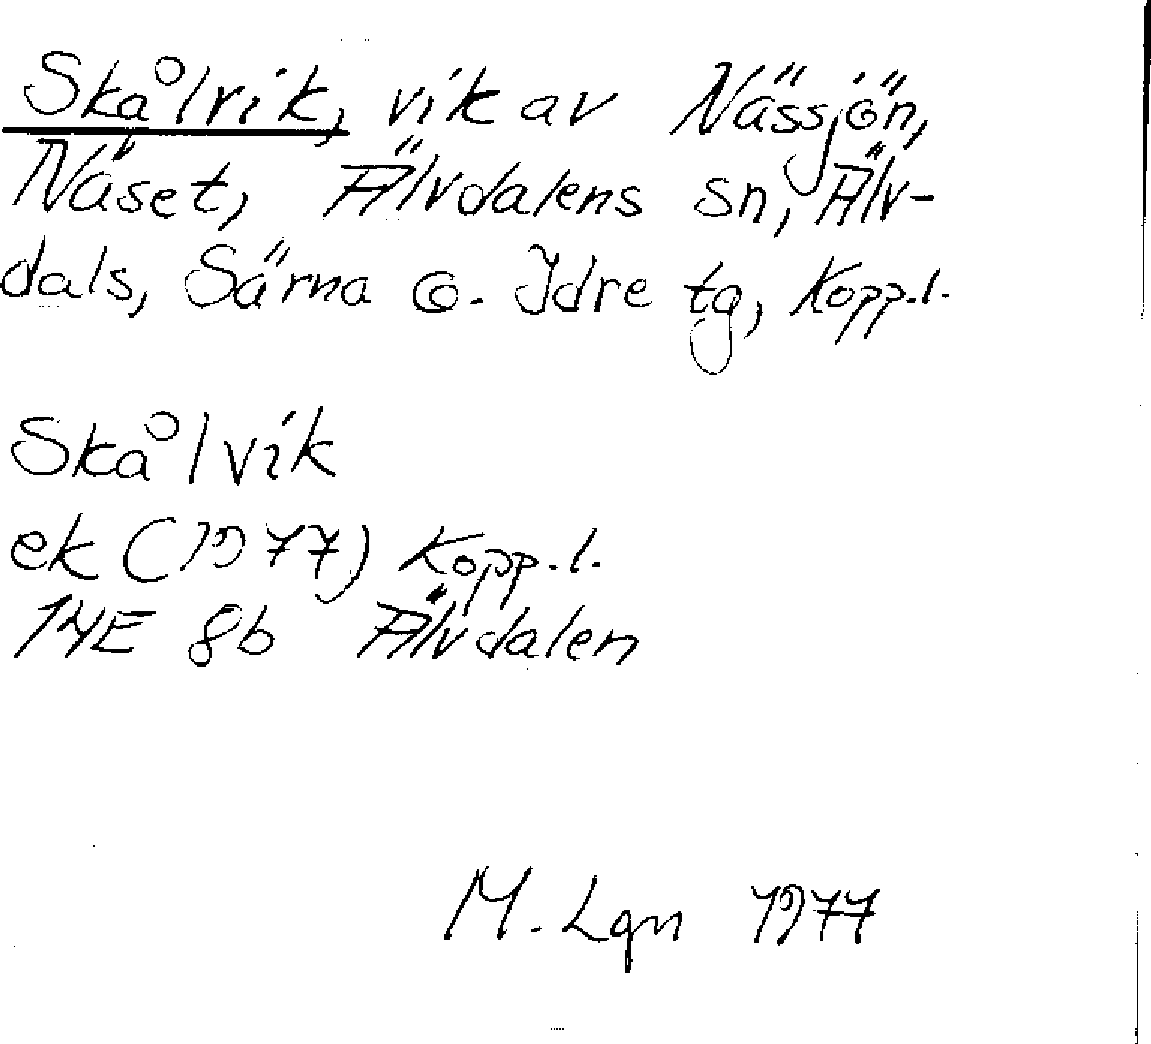 Skålvik, vik av Nässjön,
Näset, Älvdalens sn, Älv-
dals, Särna o. Idre tg, Kopp.l.
Skålvik
ek (1977) Kopp.l.
14E 8b Älvdalen
M. Lgn 1977